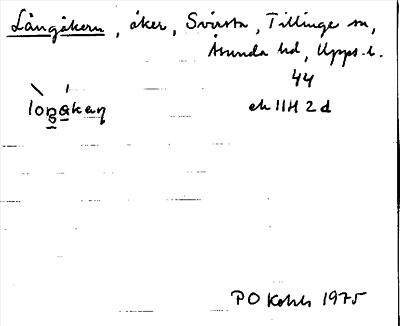 Långåkern, åker, Svirsta, Tillinge sn,
Åsunda hd, Upps. l.
44
ek 11H 2d
PO 1975